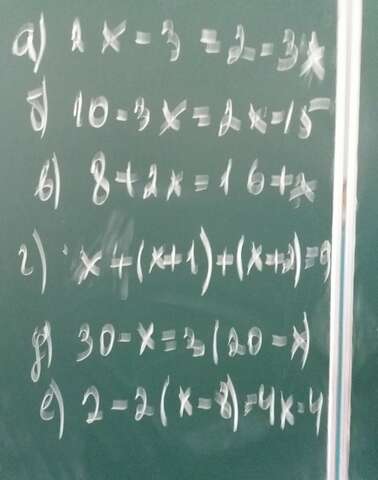 а) 2x - 3 = 2 - 3x
б) 10 - 3x = 2x - 15
в) 8 + 2x = 16 + x
г) x + (x + 1) + (x + 2) = 9
д) 30 - x = 3(20 - x)
е) 2 - 2(x - 8) = 4x - 4